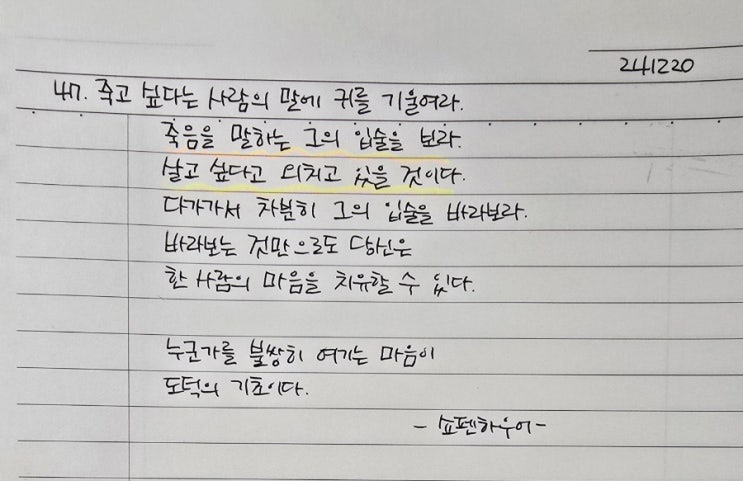 241220
47. 죽고 싶다는 사람의 말에 귀를 기울여라.
죽음을 말하는 그의 입술을 보라.
살고 싶다고 외치고 있을 것이다.
다가가서 차분히 그의 입술을 바라보라.
바라보는 것만으로도 당신은
한 사람의 마음을 치유할 수 있다.
누군가를 불쌍히 여기는 마음이
도덕의 기초이다.
- 쇼펜하우어-